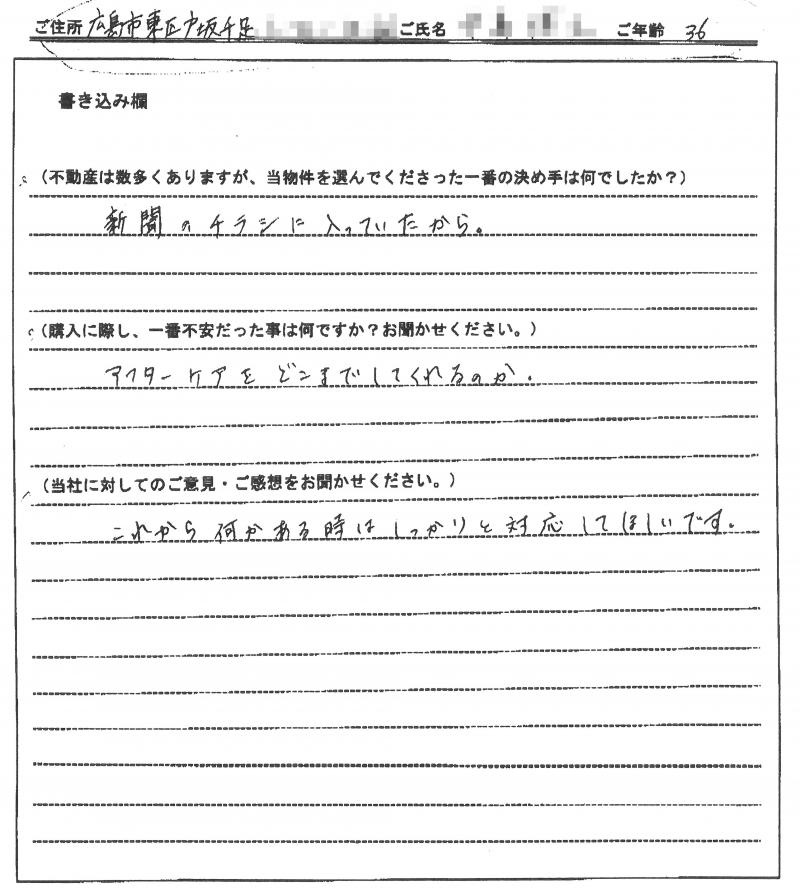 ご住所 広島市東区戸坂千足 ご氏名 ご年齢 36
書き込み欄
(不動産は数多くありますが、当物件を選んでくださった一番の決め手は何でしたか?)
新聞のチラシに入っていたから。
(購入に際し、一番不安だった事は何ですか?お聞かせください。)
アフターケアをどこまでしてくれるのか.
(当社に対してのご意見・ご感想をお聞かせください。)
これから何かある時はしっかりと対応してほしいです。